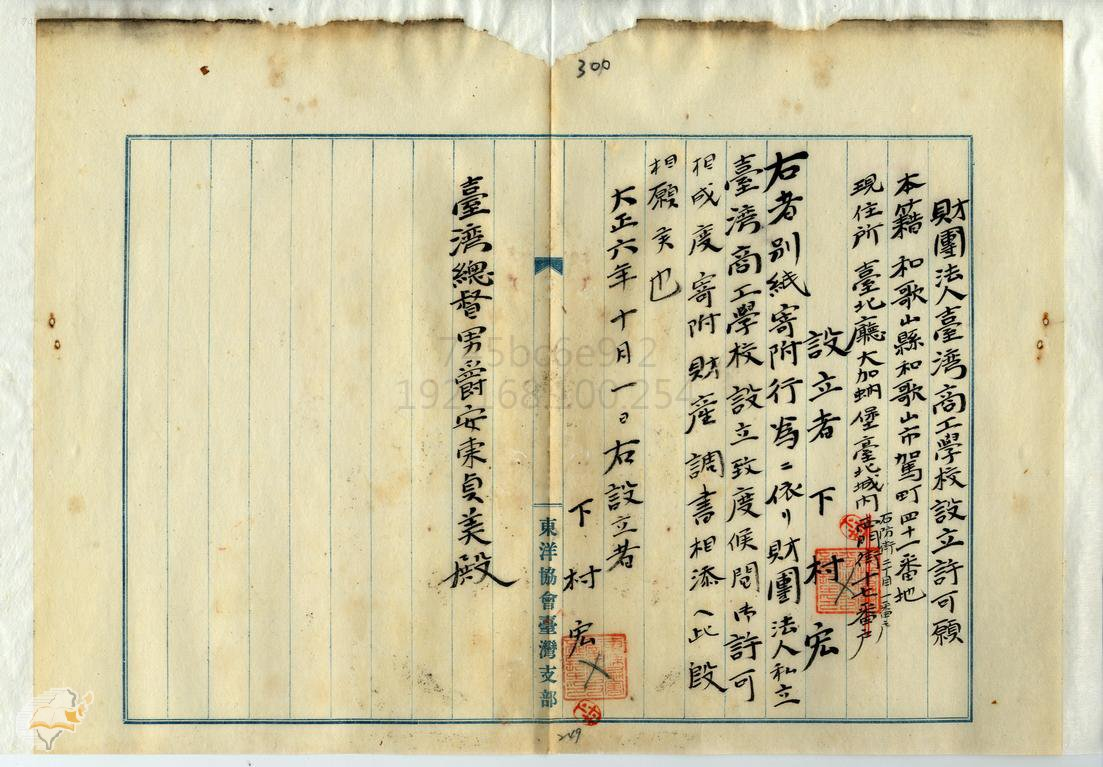 300
財團法人臺湾商工學校設立許可願
本籍 和歌山縣和歌山市駕町四十一番地
現住所 臺北廳大加蚋堡臺北城内南門街十七番戶
石防街三丁目一番戶
設立者 下村宏
右者別紙寄附行為ニ依リ財團法人私立
臺湾商工學校設立致度候間御許可
相成度寄附財産調書相添ヘ此段
相願候也
大正六年十月一日右設立者
下村宏
臺湾總督男爵安東貞美殿
東洋協會臺灣支部
249
192.168.100.254